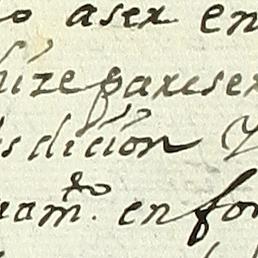 o aser en
hize pareser
isdición Y
ram.to en for